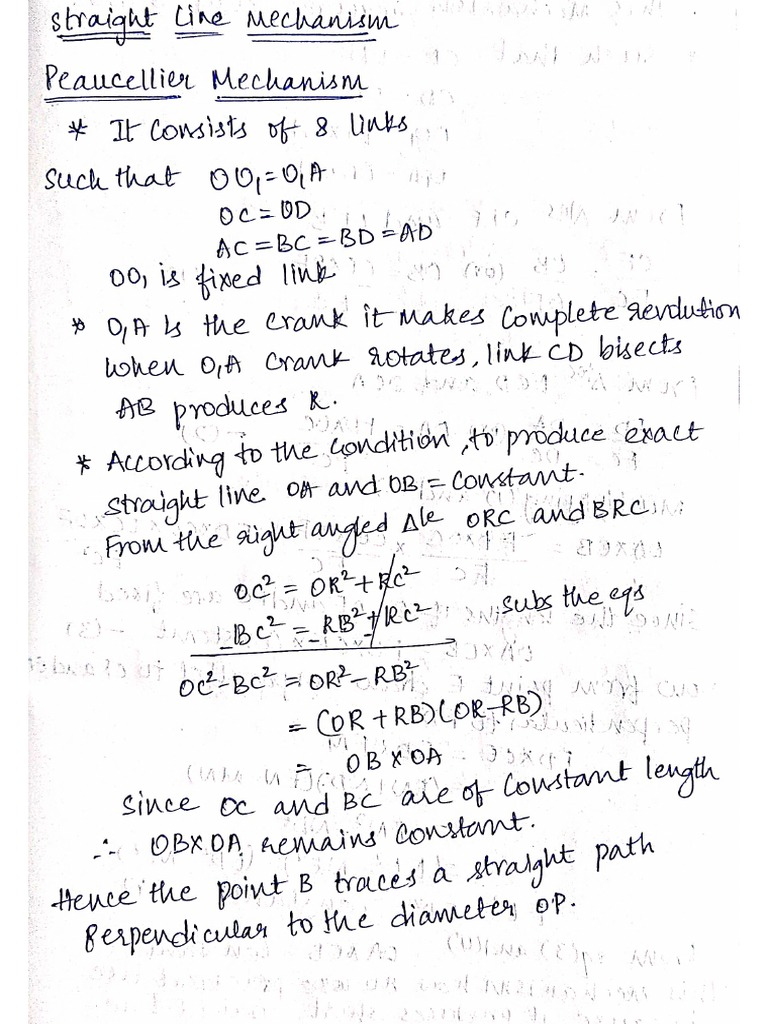 Straight Line Mechanism
Peaucellier Mechanism
* It Consists of 8 links
Such that OO₁=O₁A
OC=OD
AC=BC=BD=AD
OO₁ is fixed link
* O₁A is the crank it makes complete revolution
when O₁A crank rotates, link CD bisects
AB produces R.
* According to the condition, to produce exact
straight line OA and OB = constant.
From the right angled Δle ORC and BRC
OC² = OR²+RC²
-BC² = -RB²+RC² subs the eqs
OC²-BC² = OR²-RB²
= (OR+RB)(OR-RB)
= OB×OA
Since OC and BC are of constant length
∴ OB×OA remains constant.
Hence the point B traces a straight path
Perpendicular to the diameter OP.